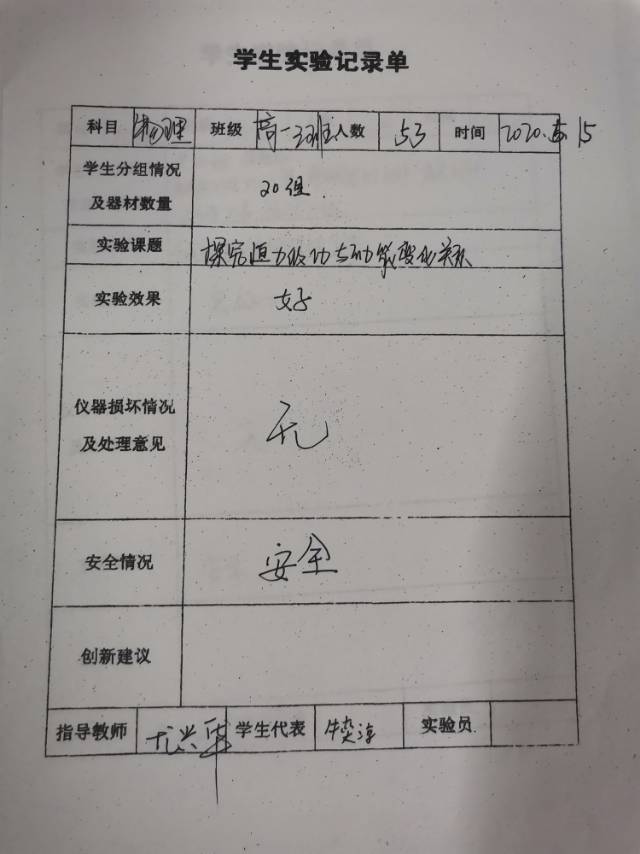 学生实验记录单
科目 物理 班级 高一3班 人数 53 时间 2020. 15
学生分组情况
及器材数量
20组.
实验课题 探究恒力做功与动能变化关系
实验效果 好
仪器损坏情况
及处理意见
无
安全情况 安全
创新建议
指导教师 尤兴华 学生代表 实验员